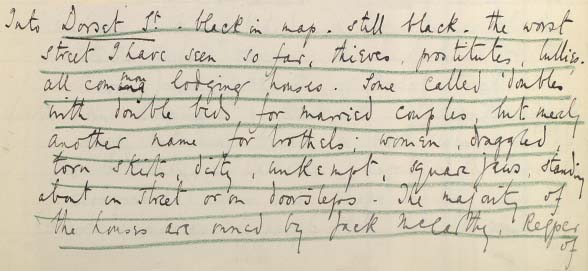 Into Dorset St. black in map. still black. The worst
street I have seen so far, thieves, prostitutes, bullies.
all common lodging houses. Some called 'doubles
with double beds for married couples, but merely
another name for brothels; women, draggled,
torn skirts, dirty, unkempt, square jaws, standing
about in street or on doorsteps. The majority of
the houses are owned by Jack McCarthy, Keeper
of